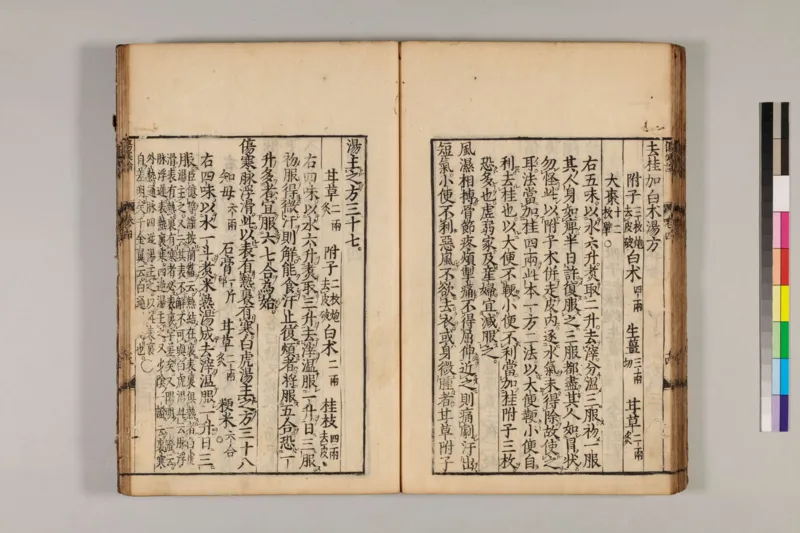 去桂加白朮湯方
附子三枚炮去皮破 白朮四兩 生薑三兩切 甘草二兩炙
大棗十二枚擘
右五味以水六升煮取二升去滓分溫三服初一服
其人身如痺半日許復服之三服都盡其人如冒狀
勿怪此以附子朮併走皮內逐水氣未得除故使之
耳法當加桂四兩此本一方二法以大便鞕小便自
利去桂也以大便不鞕小便不利當加桂附子三枚
恐多也虛弱家及產婦宜減服之
風濕相摶骨節疼煩掣痛不得屈伸近之則痛劇汗出
短氣小便不利惡風不欲去衣或身微腫者甘草附子
湯主之方三十七
甘草二兩炙 附子二枚炮去皮破 白朮二兩 桂枝四兩去皮
右四味以水六升煮取三升去滓溫服一升日三服
初服得微汗則解能食汗止復煩者將服五合恐一
升多者宜服六七合爲始
傷寒脉浮滑此以表有熱裏有寒白虎湯主之方三十八
知母六兩 石膏一斤碎 甘草二兩炙 粳米六合
右四味以水一斗煮米熟湯成去滓溫服一升日三
服